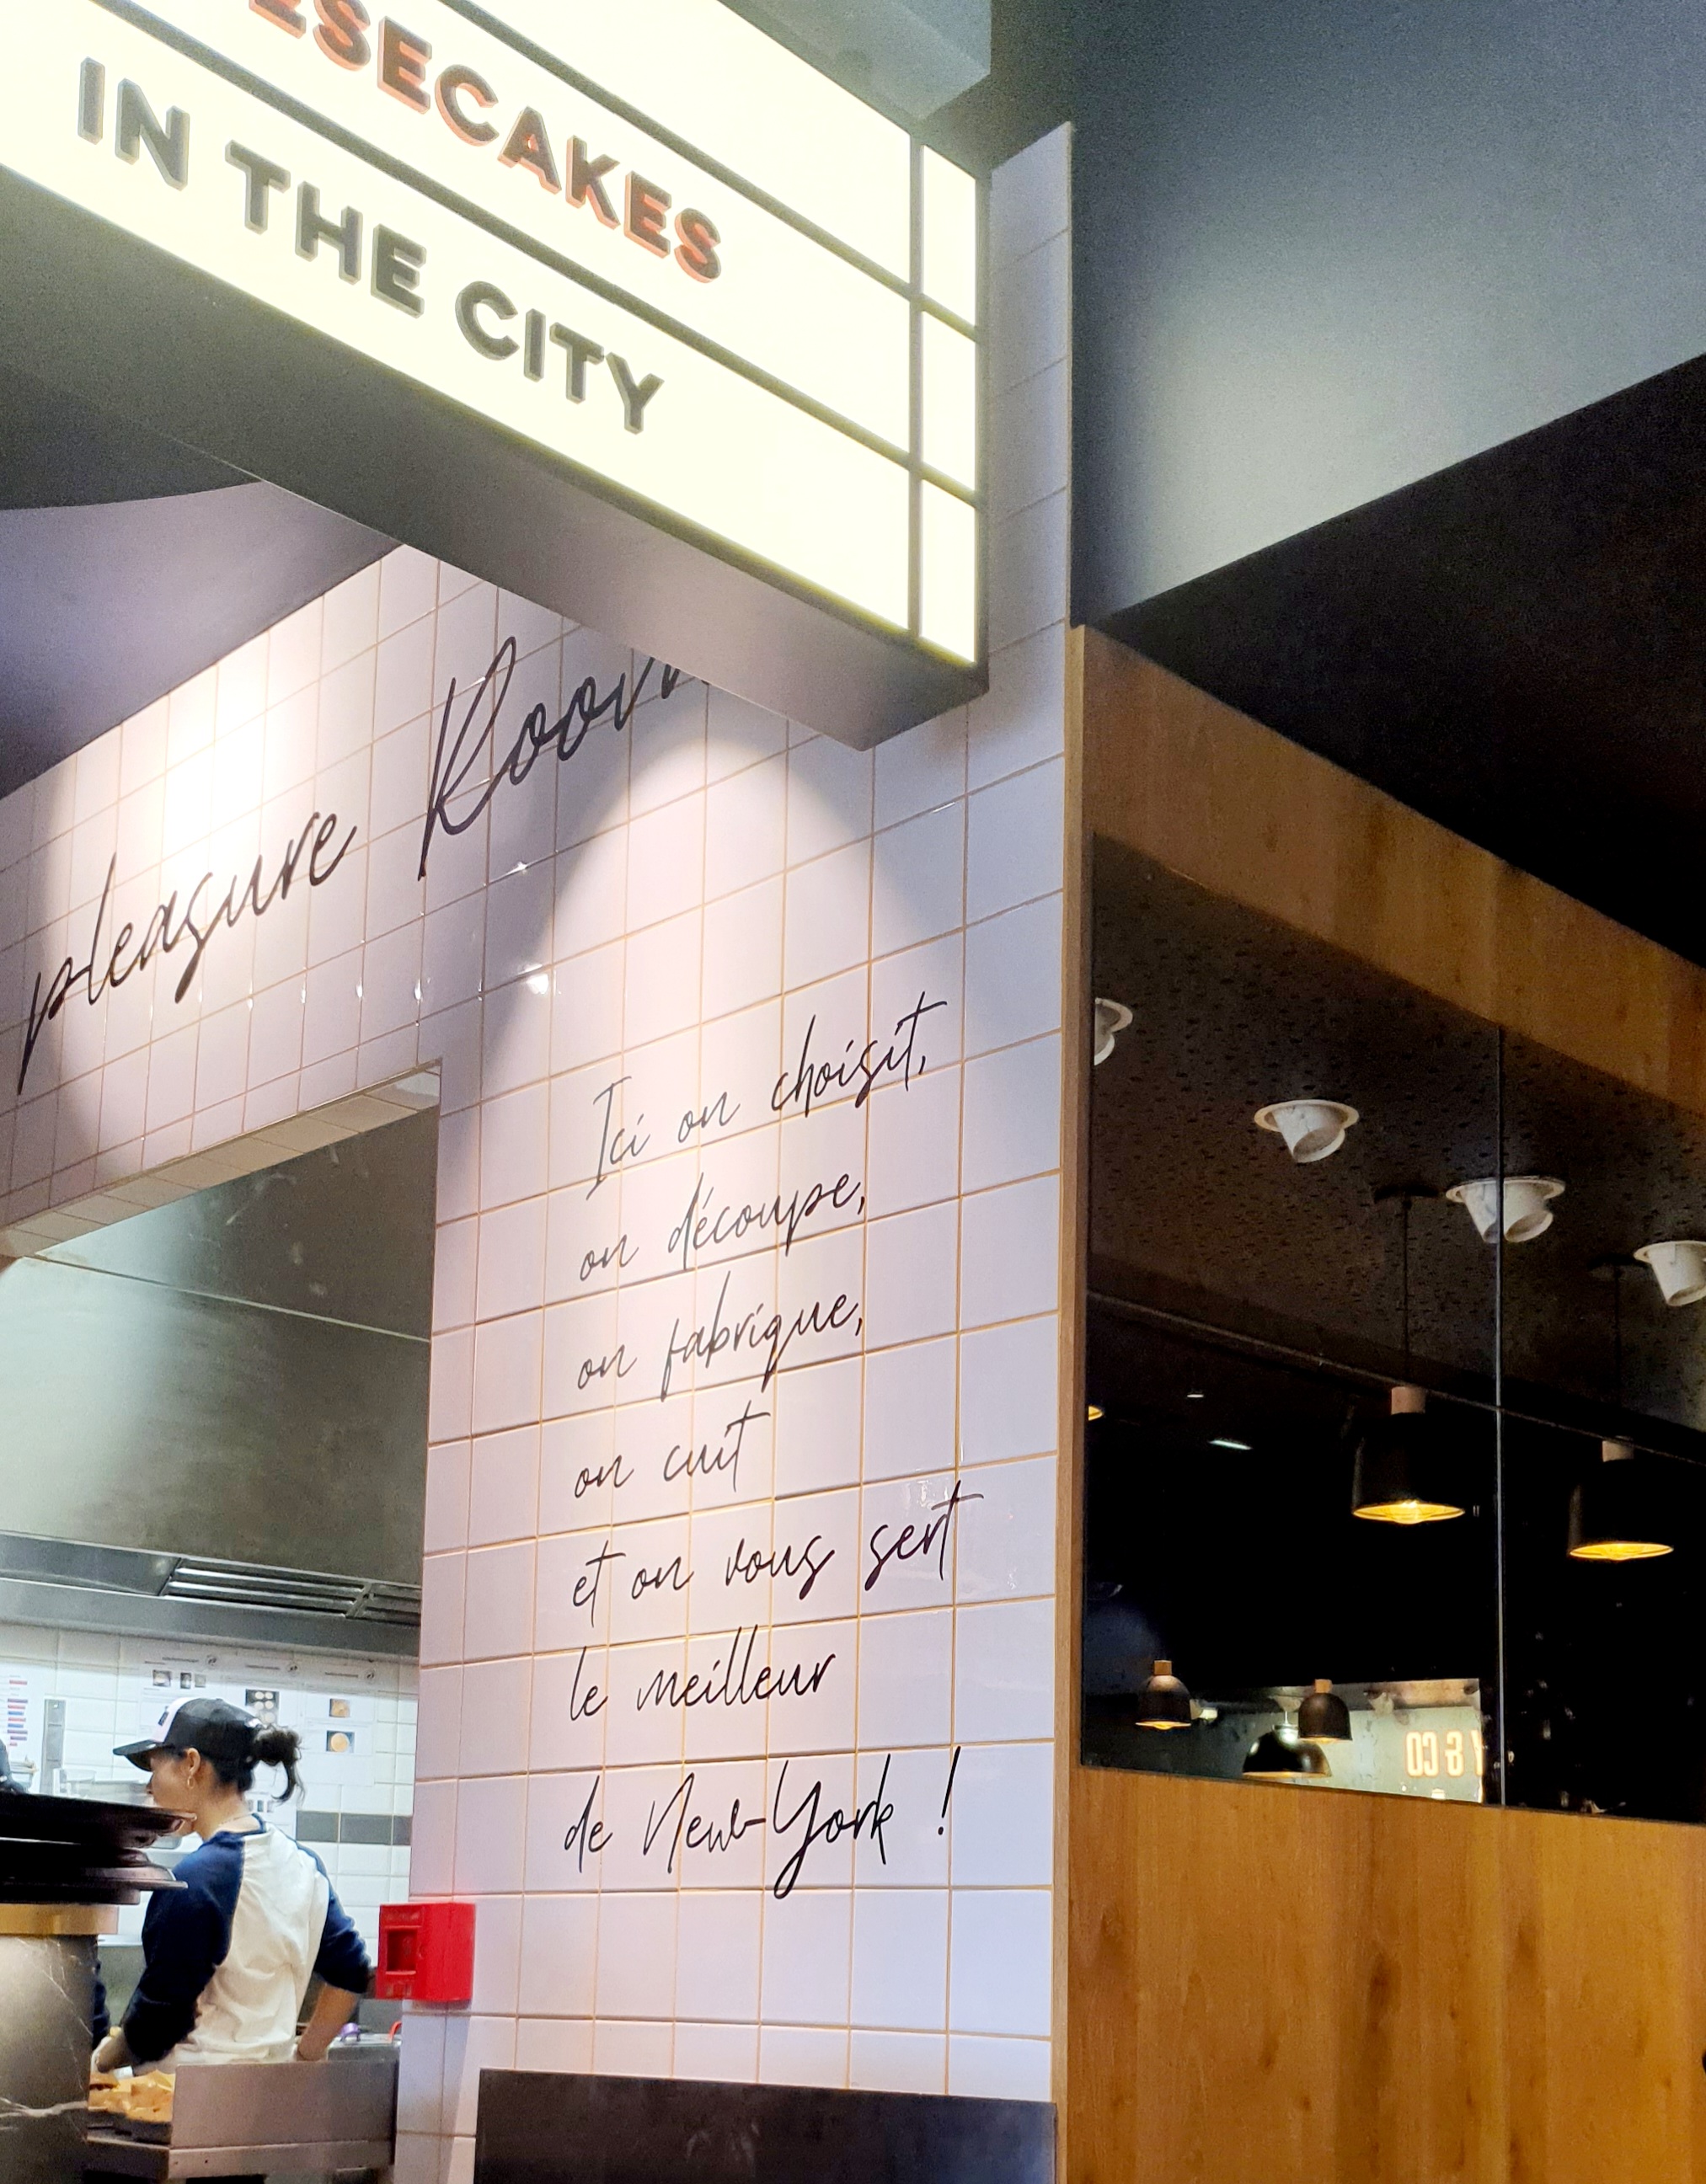 ESECAKES
IN THE CITY
pleasure Room
Ici on choisit,
on découpe,
on fabrique,
on cuit
et on vous sert
le meilleur
de New-York !
& CO